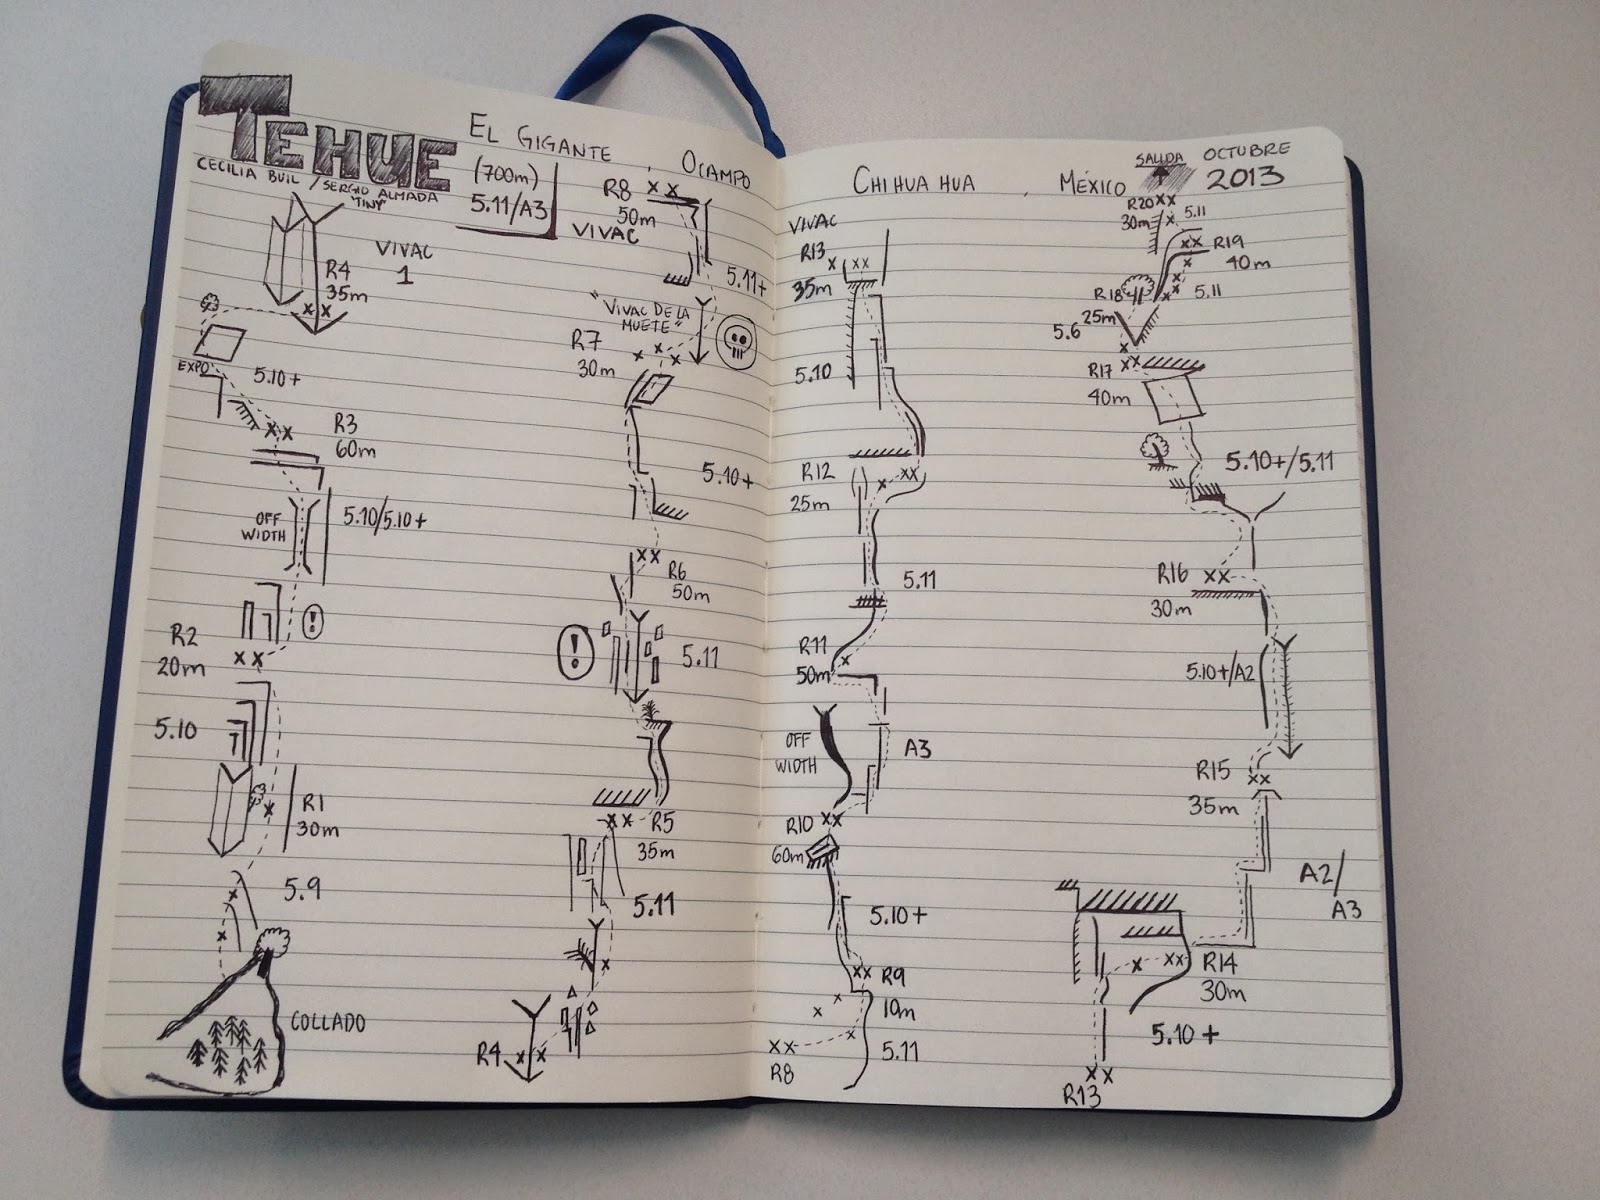 TEHUE
EL GIGANTE, OCAMPO
CECILIA BUIL / SERGIO ALMADA
"TINY"
(700m)
5.11/A3
VIVAC
1
R4
35m
EXPO
5.10+
R3
60m
OFF
WIDTH
5.10/5.10+
!
R2
20m
5.10
R1
30m
5.9
COLLADO
R8
50m
VIVAC
5.11+
"VIVAC DE LA
MUETE"
R7
30m
5.10+
R6
50m
!
5.11
R5
35m
5.11
R4
CHIHUAHUA, MÉXICO
SALIDA
OCTUBRE
2013
VIVAC
R13
35m
5.10
R12
25m
5.11
R11
50m
OFF
WIDTH
A3
R10
60m
5.10+
R9
10m
5.11
R8
R20
30m
5.11
R19
40m
R18
5.11
25m
5.6
R17
40m
5.10+/5.11
R16
30m
5.10+/A2
R15
35m
A2/
A3
R14
30m
5.10+
R13